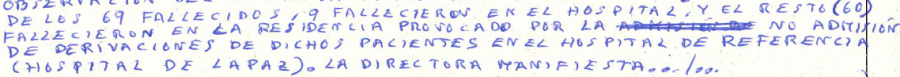 OBSERVACIÓN DE
DE LOS 69 FALLECIDOS, 9 FALLECIERON EN EL HOSPITAL, Y EL RESTO (60)
FALLECIERON EN LA RESIDENCIA PROVOCADO POR LA NO ADMISIÓN
DE DERIVACIONES DE DICHOS PACIENTES EN EL HOSPITAL DE REFERENCIA
(HOSPITAL DE LA PAZ). LA DIRECTORA MANIFIESTA../..